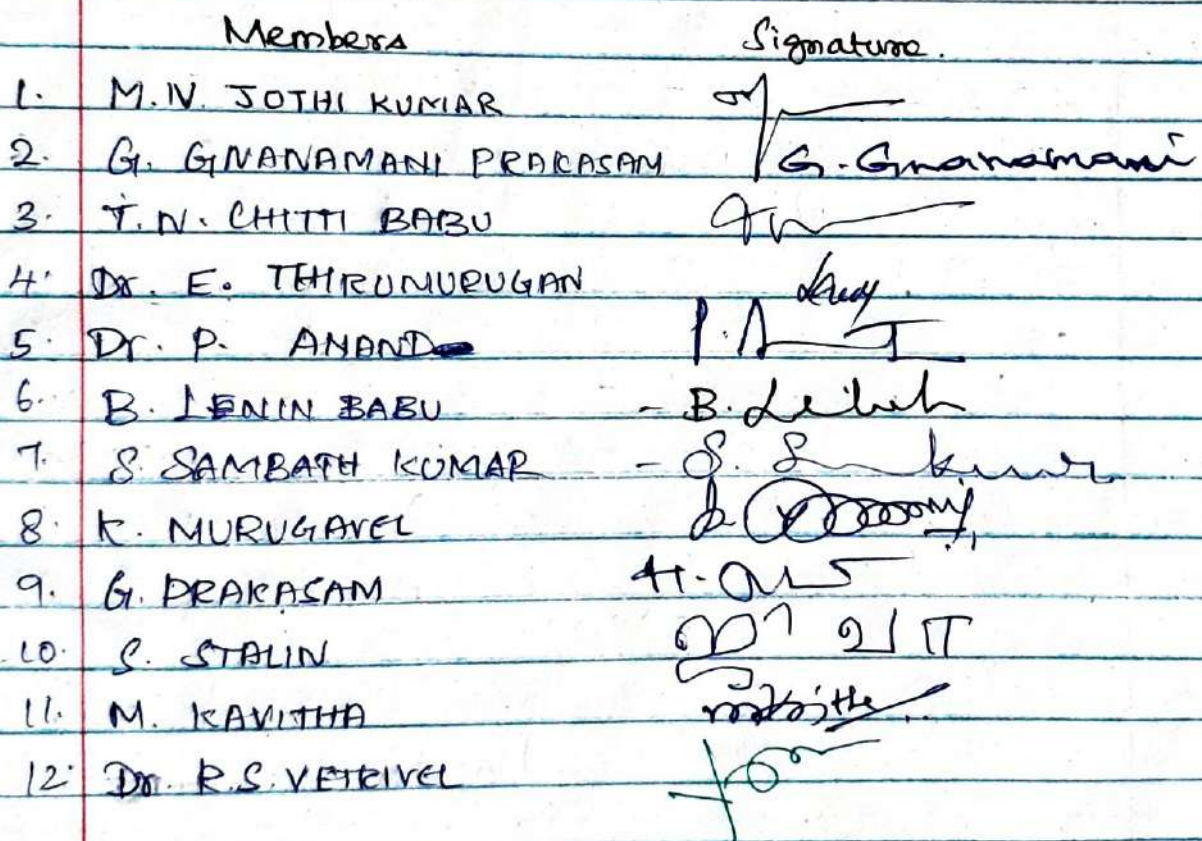 Members Signature.
1. M.N. JOTHI KUMAR
2. G. GNANAMANI PRAKASAM G. Gnanamani
3. T.N. CHITTI BABU
4. Dr. E. THIRUMURUGAN
5. Dr. P. ANAND
6. B. LENIN BABU - B.
7. S. SAMBATH KUMAR - S. S kumar
8. K. MURUGAVEL
9. G. PRAKASAM
10. S. STALIN
11. M. KAVITHA
12. Dr. R.S. VETRIVEL